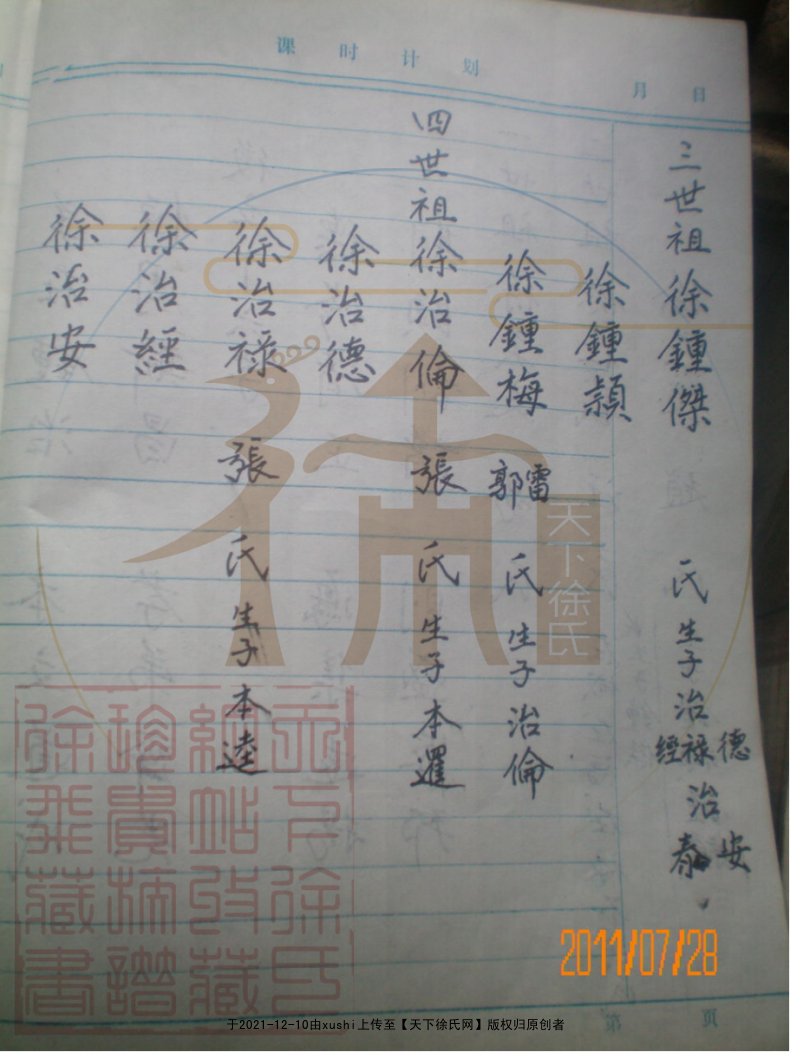 课时计划
月 日
三世祖徐鍾傑 氏生子治德
禄
經
治安
泰
徐鍾穎
徐鍾梅 雷郭氏生子治倫
四世祖徐治倫 張氏生子本暹
徐治德
徐治禄 張氏生子本逵
徐治經
徐治安
天下徐氏
2011/07/28
页
于2021-12-10由xushi上传至【天下徐氏网】版权归原创者